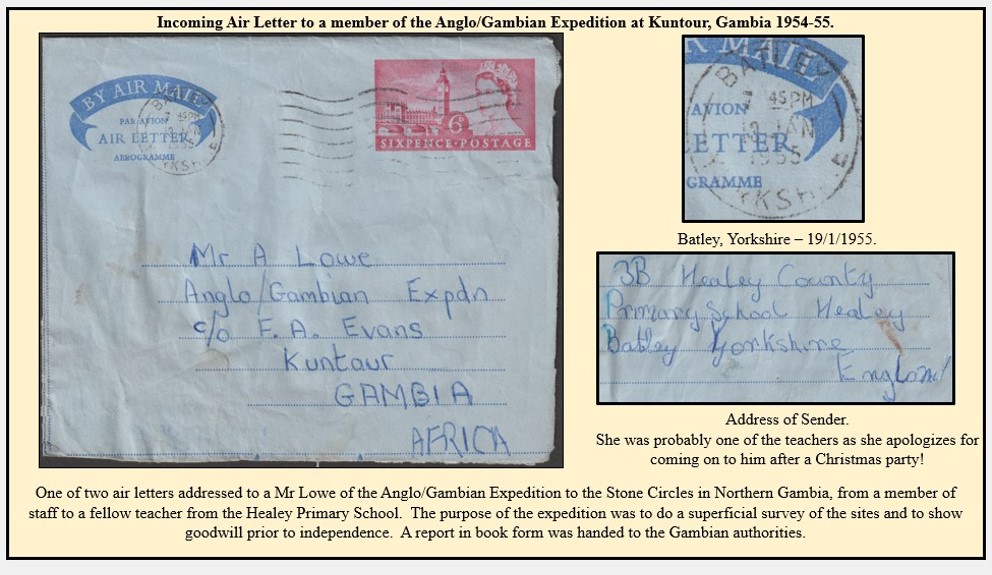 Incoming Air Letter to a member of the Anglo/Gambian Expedition at Kuntour, Gambia 1954-55.
BY AIR MAIL
PAR AVION
AIR LETTER
AEROGRAMME
BATLEY
45 PM
JAN
1955
6D
SIXPENCE·POSTAGE
Mr A Lowe
Anglo/Gambian Expdn
c/o F. A. Evans
Kuntaur
GAMBIA
AFRICA
R MAIL
BATLEY
45 PM
AVION
JAN
ETTER
1955
GRAMME
Batley, Yorkshire – 19/1/1955.
3B Healey County
Primary School Healey
Batley Yorkshire
England
Address of Sender.
She was probably one of the teachers as she apologizes for
coming on to him after a Christmas party!
One of two air letters addressed to a Mr Lowe of the Anglo/Gambian Expedition to the Stone Circles in Northern Gambia, from a member of
staff to a fellow teacher from the Healey Primary School. The purpose of the expedition was to do a superficial survey of the sites and to show
goodwill prior to independence. A report in book form was handed to the Gambian authorities.